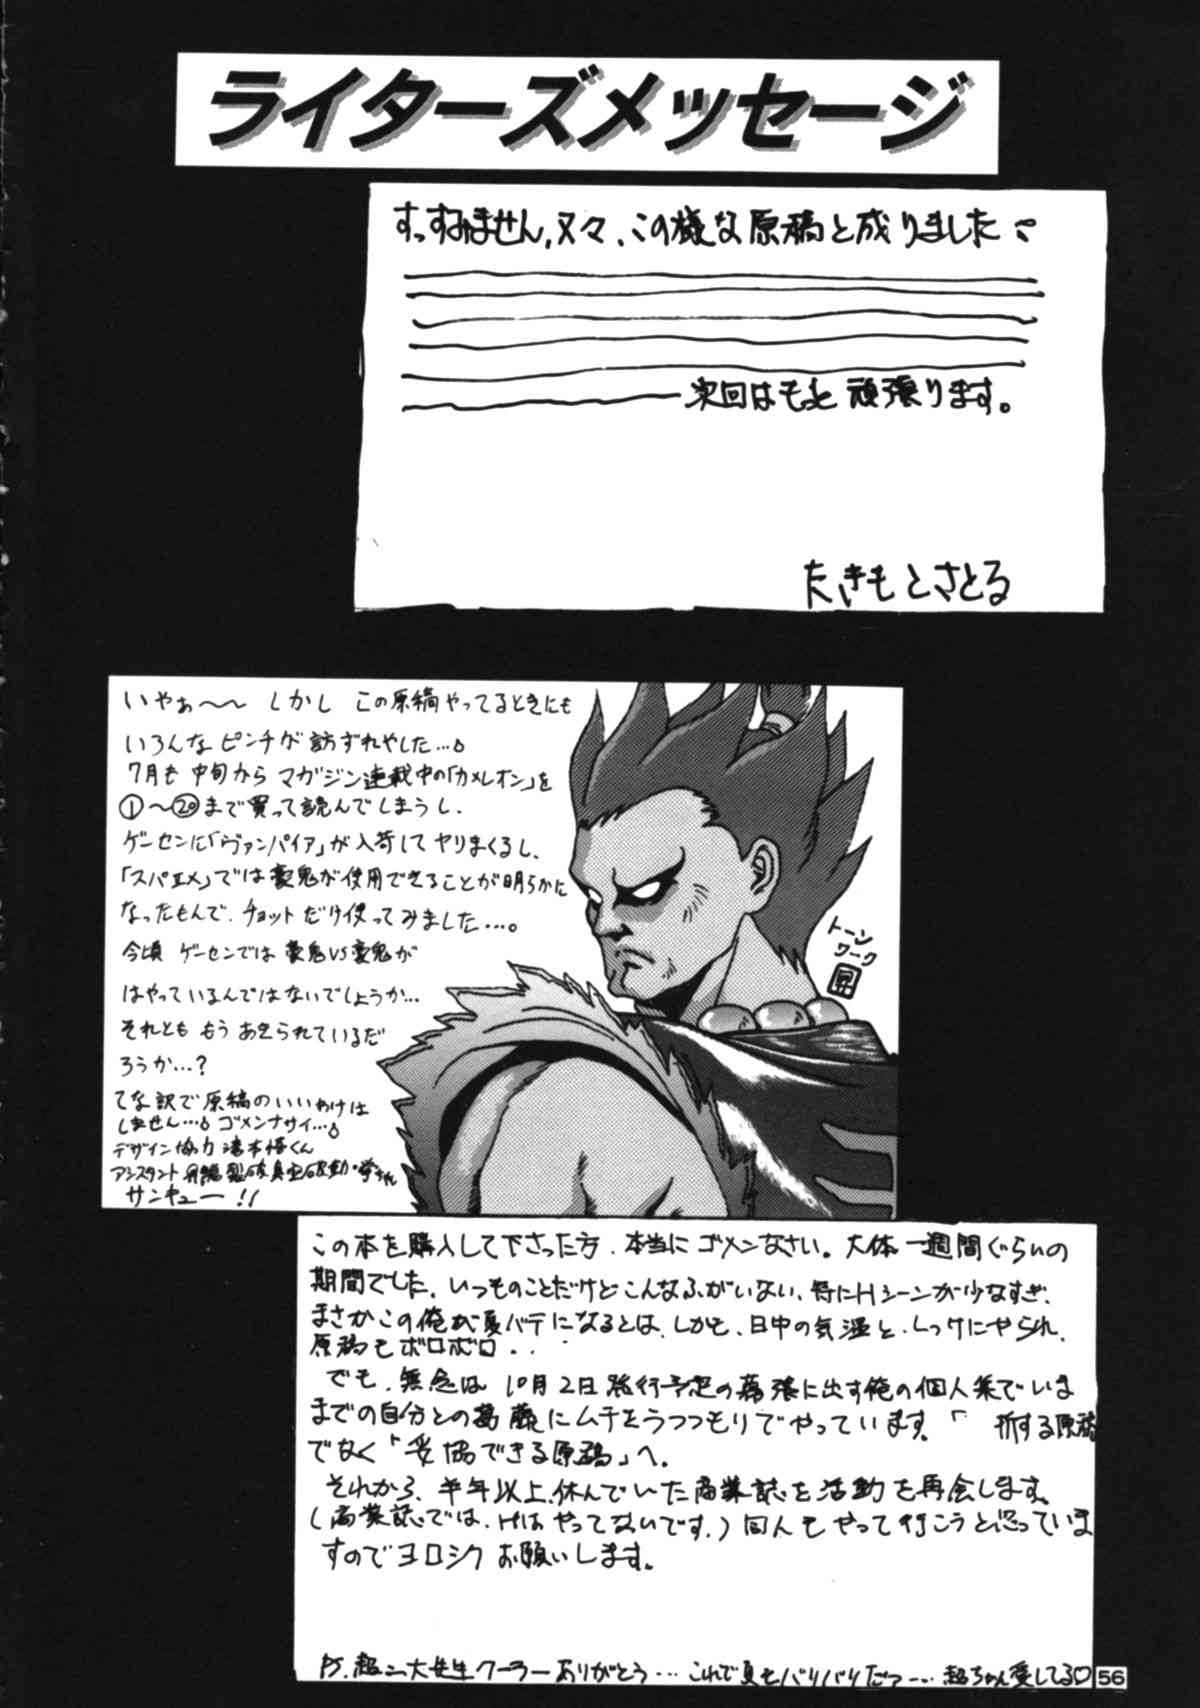 ライターズメッセージ
すっすみません、又々、この様な原稿と成りました
次回はもっと頑張ります。
たきもとさとる
いやぁ〜〜 しかし この原稿やってるときにも
いろんなピンチが訪ずれやした…。
7月も中旬から マガジン連載中の「カメレオン」を
①〜⑳まで買って読んでしまうし、
ゲーセンに「ヴァンパイア」が入荷してヤリまくるし、
「スパエメ」では豪鬼が使用できることが明らかに
なったもんで、チョットだけ使ってみました…。
今頃 ゲーセンでは 豪鬼VS豪鬼が
はやっているんではないでしょうか…
それとも もう あきられているだ
ろうか…?
てな訳で原稿のいいわけは
しません…。ゴメンナサイ…。
デザイン協力 滝本悟くん
アシスタント
サンキュー!!
トーン
ワーク
昇
この本を購入して下さった方、本当にゴメンなさい。大体一週間ぐらいの
期間でした。いつものことだけどこんなふがいない、特にHシーンが少なすぎ、
まさかこの俺が夏バテになるとは、しかも、日中の気温と、しっけにやられ、
原稿もボロボロ・・
でも、無念は10月2日発行予定の幕張に出す俺の個人集でいま
までの自分との葛藤にムチをうつつもりでやっています。「 折する原稿
でなく「妥協できる原稿」へ。
それから、半年以上、休んでいた商業誌を活動を再会します。
(商業誌では、Hはやってないです。)同人もやって行こうと思っていま
すのでヨロシクお願いします。
P.S. 超二大先生クーラーありがとう… これで夏もバリバリだっー… 超ちゃん愛してる♡
56